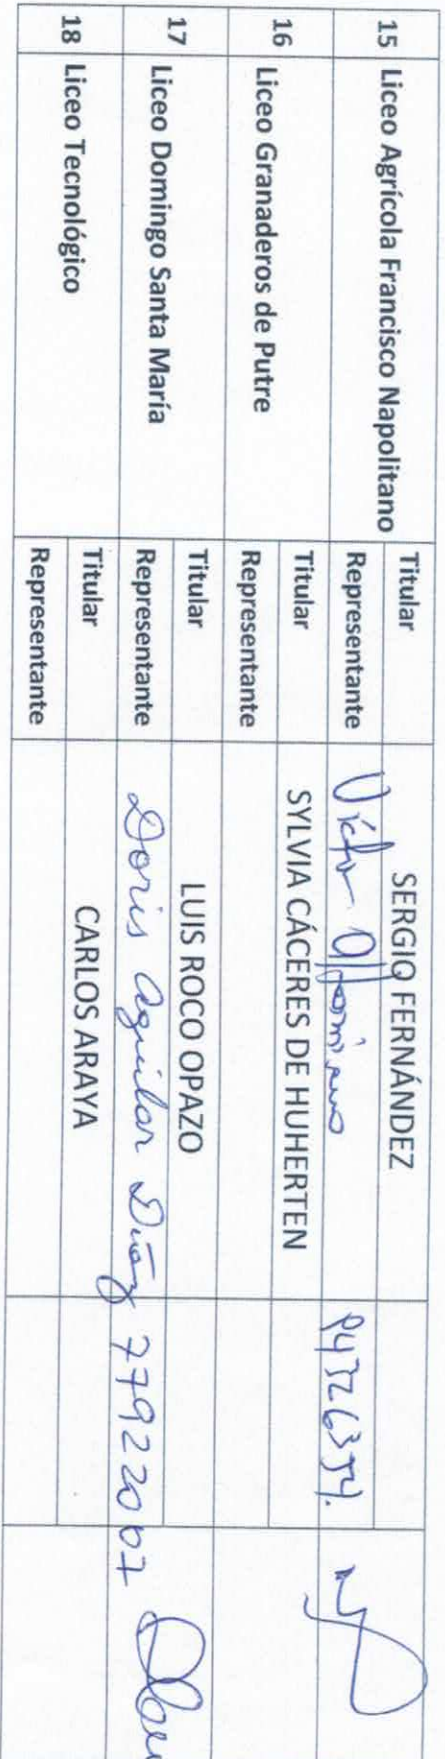 15 Liceo Agrícola Francisco Napolitano Titular SERGIO FERNÁNDEZ
Representante Víctor 
16 Liceo Granaderos de Putre Titular SYLVIA CÁCERES DE HUHERTEN
Representante
17 Liceo Domingo Santa María Titular LUIS ROCO OPAZO
Representante Doris Aguilar Díaz 77922007
18 Liceo Tecnológico Titular CARLOS ARAYA
Representante